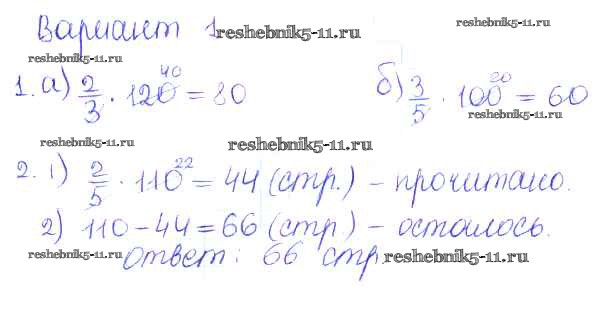 Вариант 1 reshebnik5-11.ru
reshebnik5-11.ru
reshebnik5-11.ru
1. а) 2/3 · 120 40 = 80 б) 3/5 · 100 20 = 60
reshebnik5-11.ru
reshebnik5-11.ru
reshebnik5-11.ru
2. 1) 2/5 · 110 22 = 44 (стр.) – прочитано.
2) 110 – 44 = 66 (стр) – осталось.
reshebnik5-11.ru
ответ: 66 стр. reshebnik5-11.ru